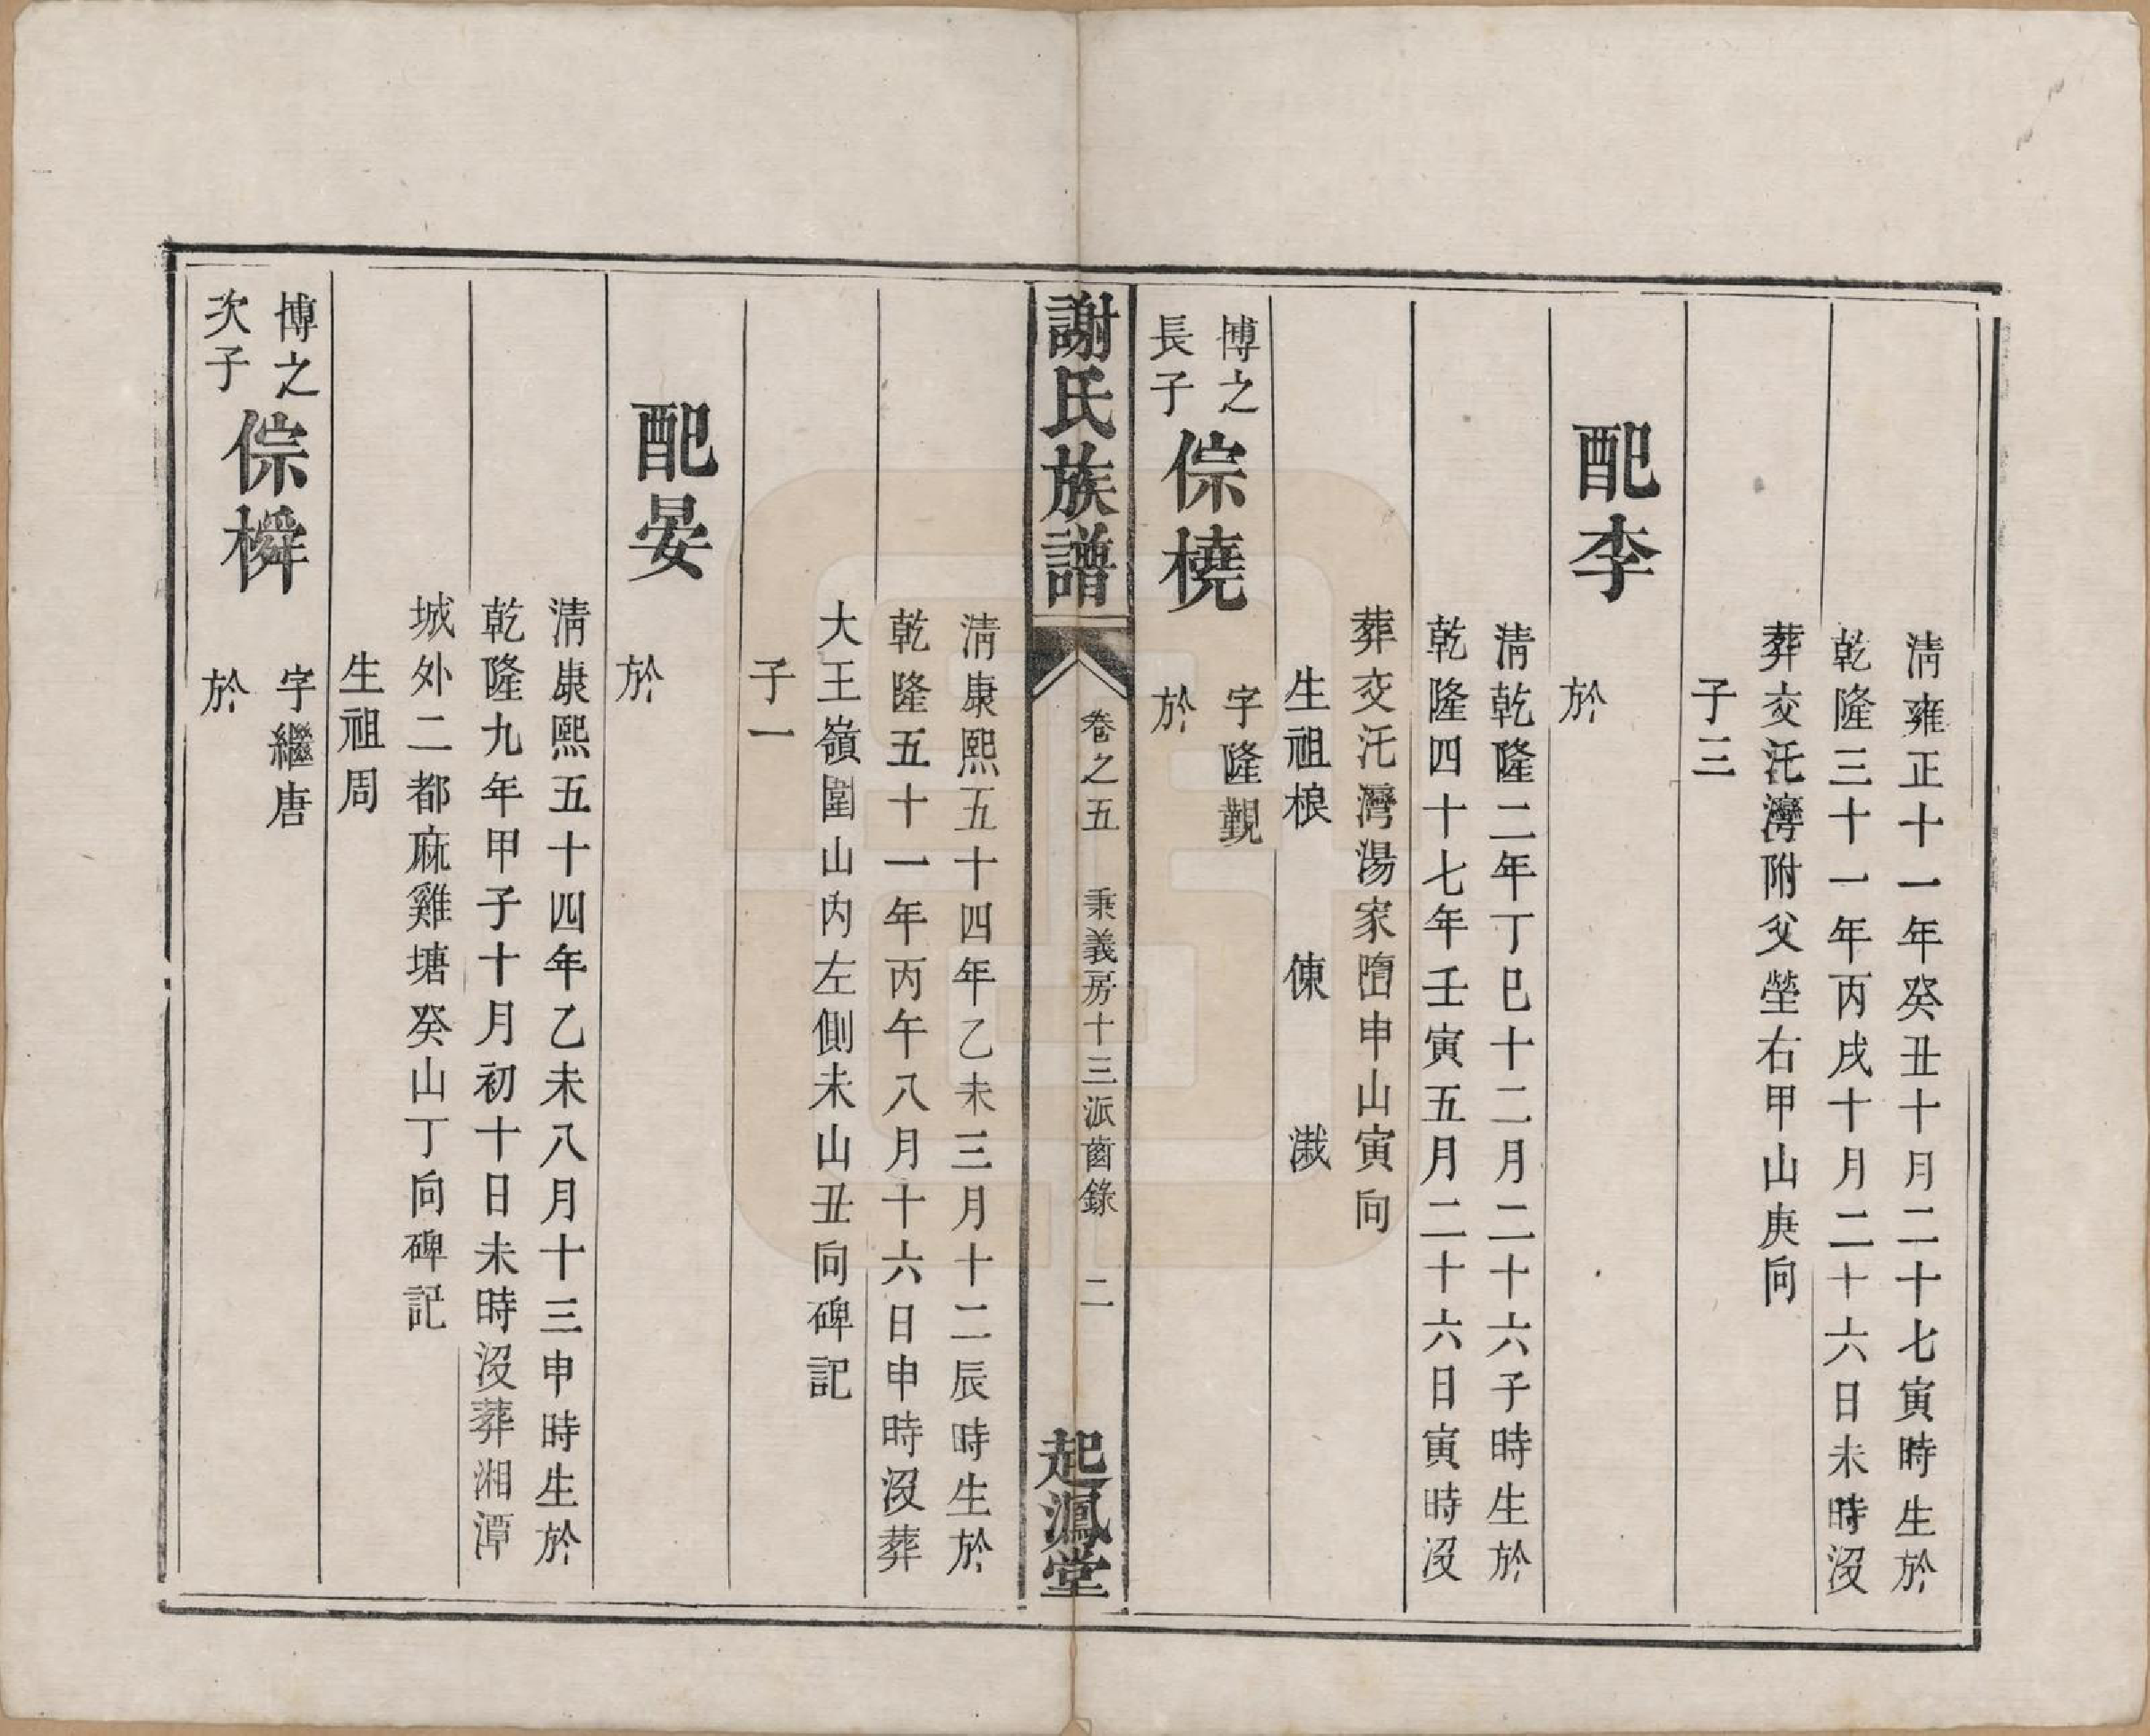 淸雍正十一年癸丑十月二十七寅時生於
乾隆三十一年丙戌十月二十六日未時沒
葬交汑灣附父塋右甲山庚向
子三
配李
於
淸乾隆二年丁巳十二月二十六子時生於
乾隆四十七年壬寅五月二十六日寅時沒
葬交汑灣湯家𡺾申山寅向
生祖桹 倲 濈
博之
長子
倧橈
字隆覲
於
謝氏族譜
卷之五
秉義房十三派齒錄
二
起鳳堂
淸康熙五十四年乙未三月十二辰時生於
乾隆五十一年丙午八月十六日申時沒葬
大王嶺圍山內左側未山丑向碑記
子一
配晏
於
淸康熙五十四年乙未八月十三申時生於
乾隆九年甲子十月初十日未時沒葬湘潭
城外二都麻雞塘癸山丁向碑記
生祖周
博之
次子
倧橓
字繼唐
於